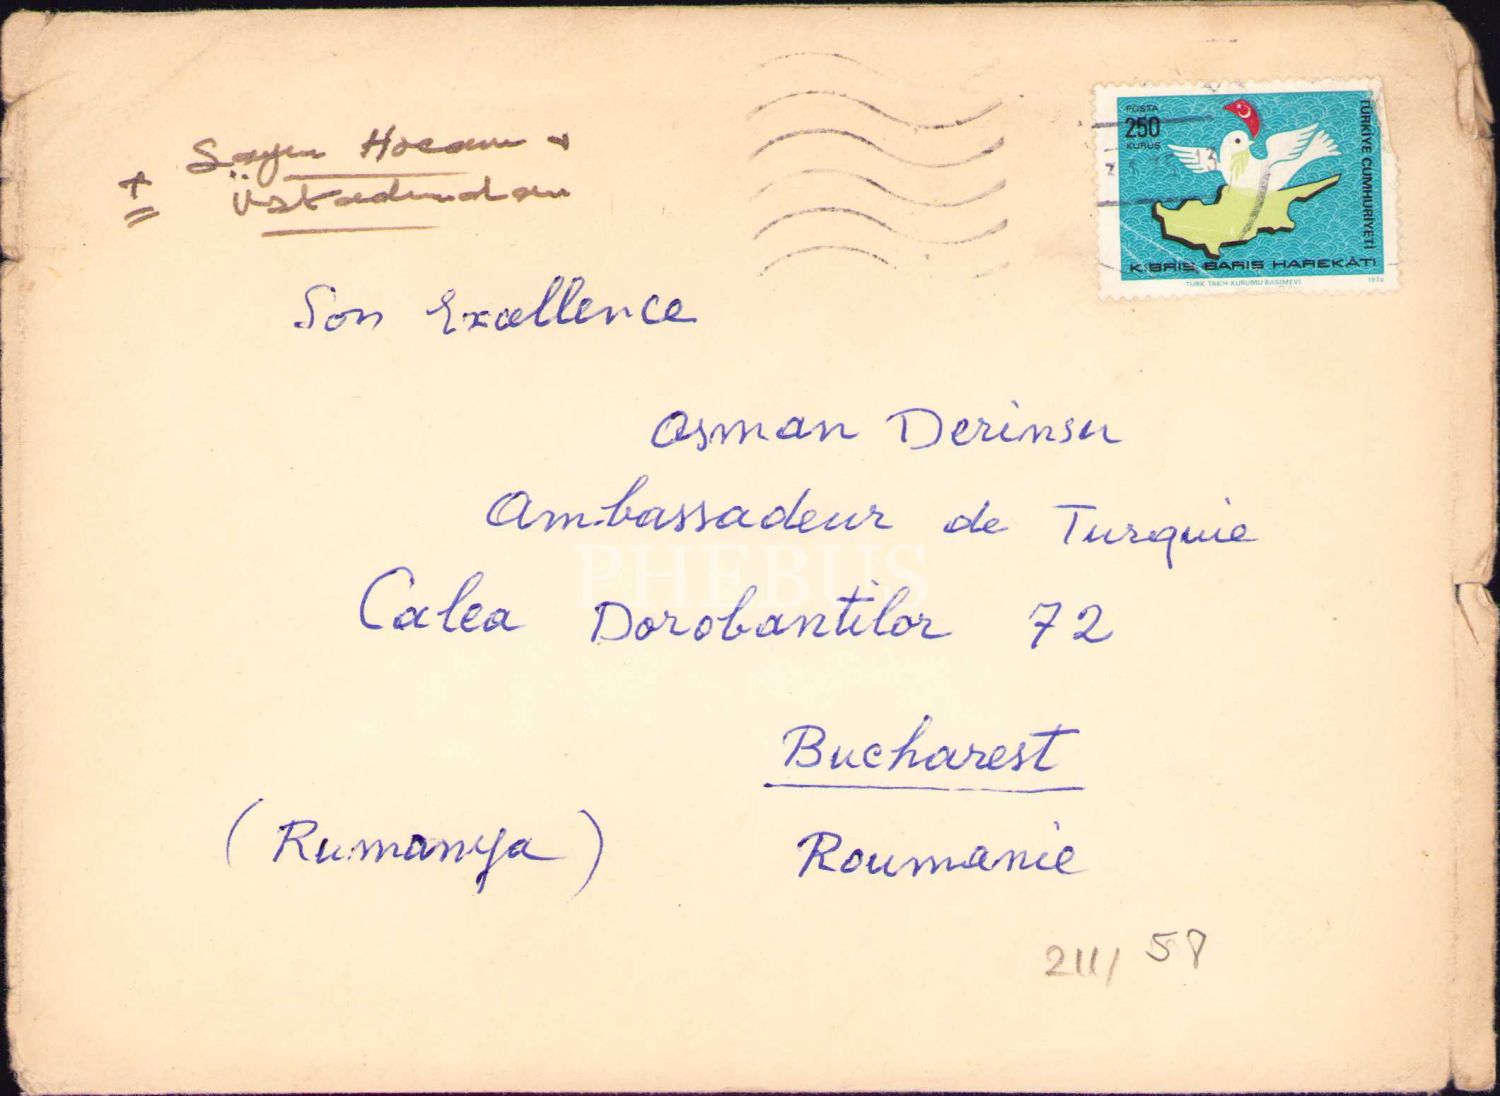 Sayın Hocam +
Üstadımdan
POSTA
250
KURUŞ
TÜRKİYE CUMHURİYETİ
KIBRIS BARIŞ HAREKÂTI
TÜRK TARİH KURUMU BASIMEVİ 1974
13
Son Excellence
Osman Derinsu
Ambassadeur de Turquie
PHEBUS
Calea Dorobantilor 72
Bucharest
(Rumanya) Roumanie
211/ 58